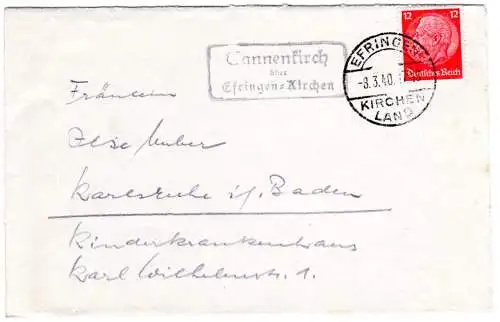 Tannenkirch
über
Efringen-Kirchen
EFRINGEN-
-8.3.40.
KIRCHEN
LAND
12 12
Deutsches Reich
Fräulein
Ilse Huber
Karlsruhe i/Baden
Kinderkrankenhaus
Karl Wilhelmstr. 1.